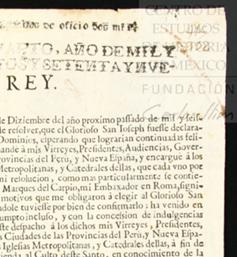 de oficio dos mrs
ARTO, AÑO DE MIL Y
TOS Y SETENTA Y NVE-
CENTRO DE
ESTUDIOS
DE MÉXICO
FUNDACIÓN
REY.
de Diziembre del año proximo passado de mil y seis-
de resolver, que el Glorioso San Ioseph fuesse declara-
Dominios, esperando que lograrian continuadas felici-
mande à mis Virreyes, Presidentes, Audiencias, Gover-
Provincias del Perù, y Nueva España, y encargue à los
Metropolitanas, y Catedrales dellas, que cada vno por
mi resolucion, como mas particularmente se contiene
Marques del Carpio, mi Embaxador en Roma, signi-
motivos que me obligaron à elegir al Glorioso San
dole tuviesse por bien de confirmarlo; ha venido en
sumpto incluso, y con la concesion de indulgencias
este despacho à los dichos mis Virreyes, Presidentes,
Ciudades de las Provincias del Perù, y Nueva Espa-
Iglesias Metropolitanas, y Catedrales dellas, à fin de
al Culto deste Santo, en conocimiento de la